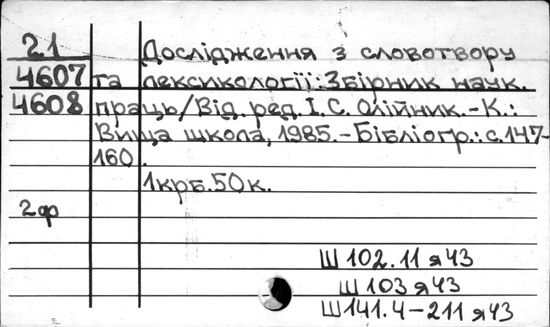 21 Дослідження з словотвору
4607 та лексикології: Збірник наук.
4608 праць/Від. ред. І. С. Олійник.-К.:
Вища школа, 1985.-Бібліогр.: с.147-
160.
1крб.50к.
2ф
Ш 102.11 я43
Ш 103 я43
Ш141.4-211 я43